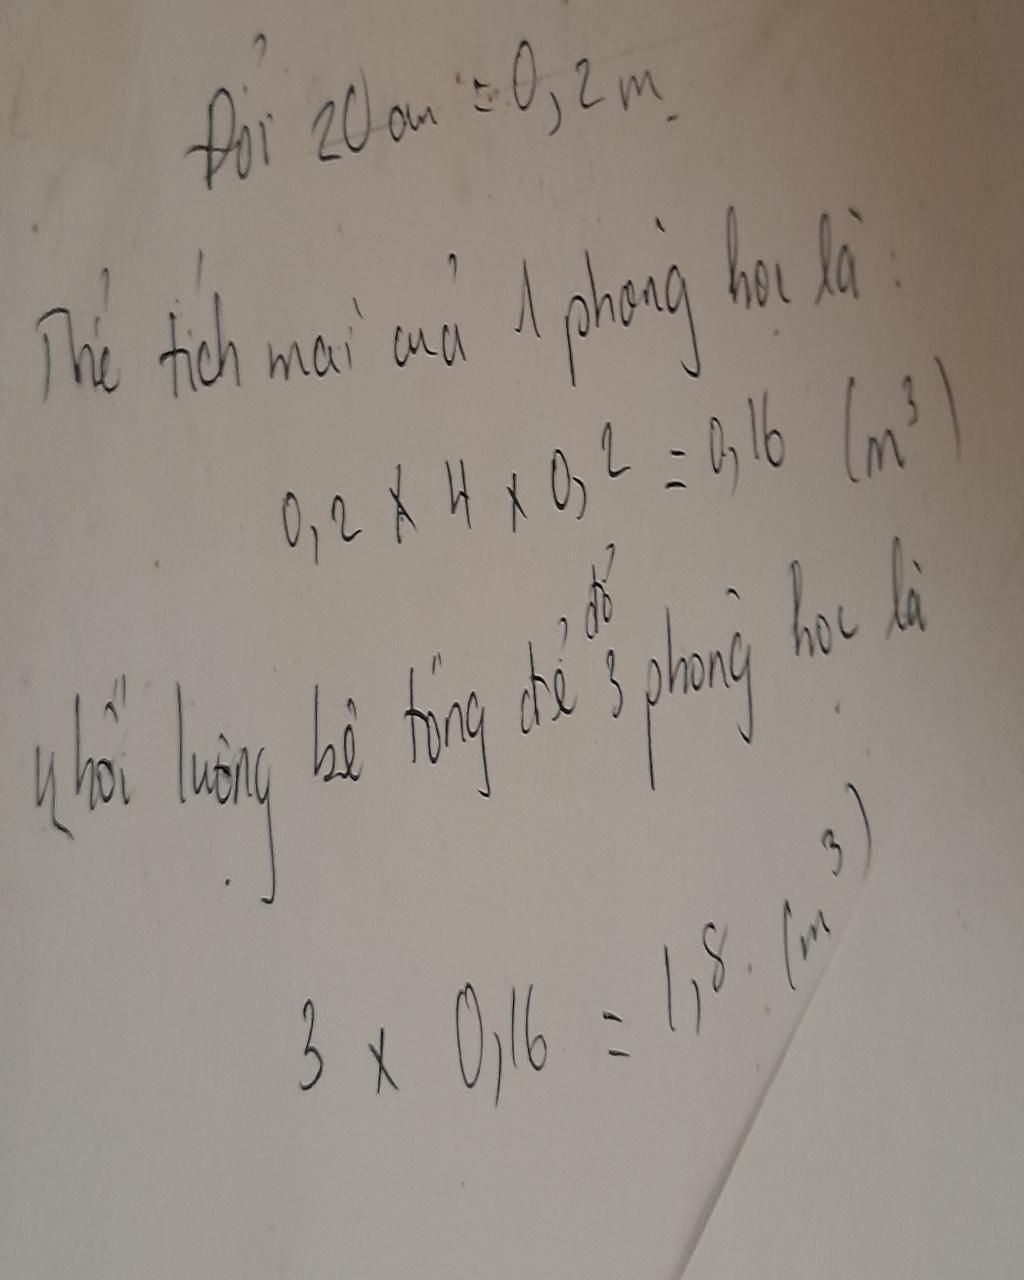 Đổi 20 cm = 0,2 m.
Thể tích mái của 1 phòng học là :
0,2 x 4 x 0,2 = 0,16 (m³)
Khối lượng bê tông để đổ 3 phòng học là
3 x 0,16 = 1,8. (m³)